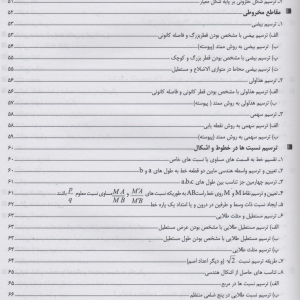 ۱. ترسیم شکل حلزونی بر پایه شکل معیار ۵۱
مقاطع مخروطی
۱. ترسیم بیضی ۵۳
الف) ترسیم بیضی با مشخص بودن قطر بزرگ و فاصله کانونی ۵۳
ب) ترسیم بیضی به روش ممتد (پیوسته) ۵۴
پ) ترسیم بیضی با مشخص بودن قطر بزرگ و کوچک ۵۵
ت) ترسیم بیضی محاط در متوازی الاضلاع و مستطیل ۵۵
۲. ترسیم هذلولی ۵۶
الف) ترسیم هذلولی با مشخص بودن قطر کانونی و فاصله کانونی ۵۶
ب) ترسیم هذلولی به روش ممتد (پیوسته) ۵۷
۳. ترسیم سهمی ۵۸
الف) ترسیم سهمی به روش نقطه یابی ۵۸
ب) ترسیم سهمی به روش ممتد (پیوسته) ۵۹
ترسیم نسبت ها در خطوط و اشکال ۶۰
۱. تقسیم خط به قسمت های مساوی یا نسبت های خاص ۶۰
۲. تعیین و ترسیم واسطه هندسی مابین دو قطعه خط به طول های a و b ۶۰
۳. ترسیم چهارمین جز تناسب بین طول های a,b,c ۶۰
۴. تعیین و ترسیم نقاط M و M' روی خط راست AB به طوریکه نسبت های M'A/M'B و MA/MB مساوی نسبت معلوم p/q باشد ۶۱
۵. ایجاد نسبت ذات وسط و طرفین در درون و یا امتداد یک پاره خط ۶۲
۶. ترسیم مستطیل و مثلث طلایی ۶۳
الف) ترسیم مستطیل طلایی با مشخص بودن عرض مستطیل ۶۳
ب) ترسیم مستطیل طلایی با مشخص بودن طول مستطیل ۶۳
پ) ترسیم مثلث طلایی ۶۴
۷. طریقه ترسیم نسبت √2 (و دیگر اعداد اصم) ۶۴
۸. تناسب های حاصل از اشکال هندسی ۶۴
الف) ترسیم نسبت ها در مربع ۶۴
ب) ترسیم نسبت طلایی در پنج ضلعی منتظم ۶۵